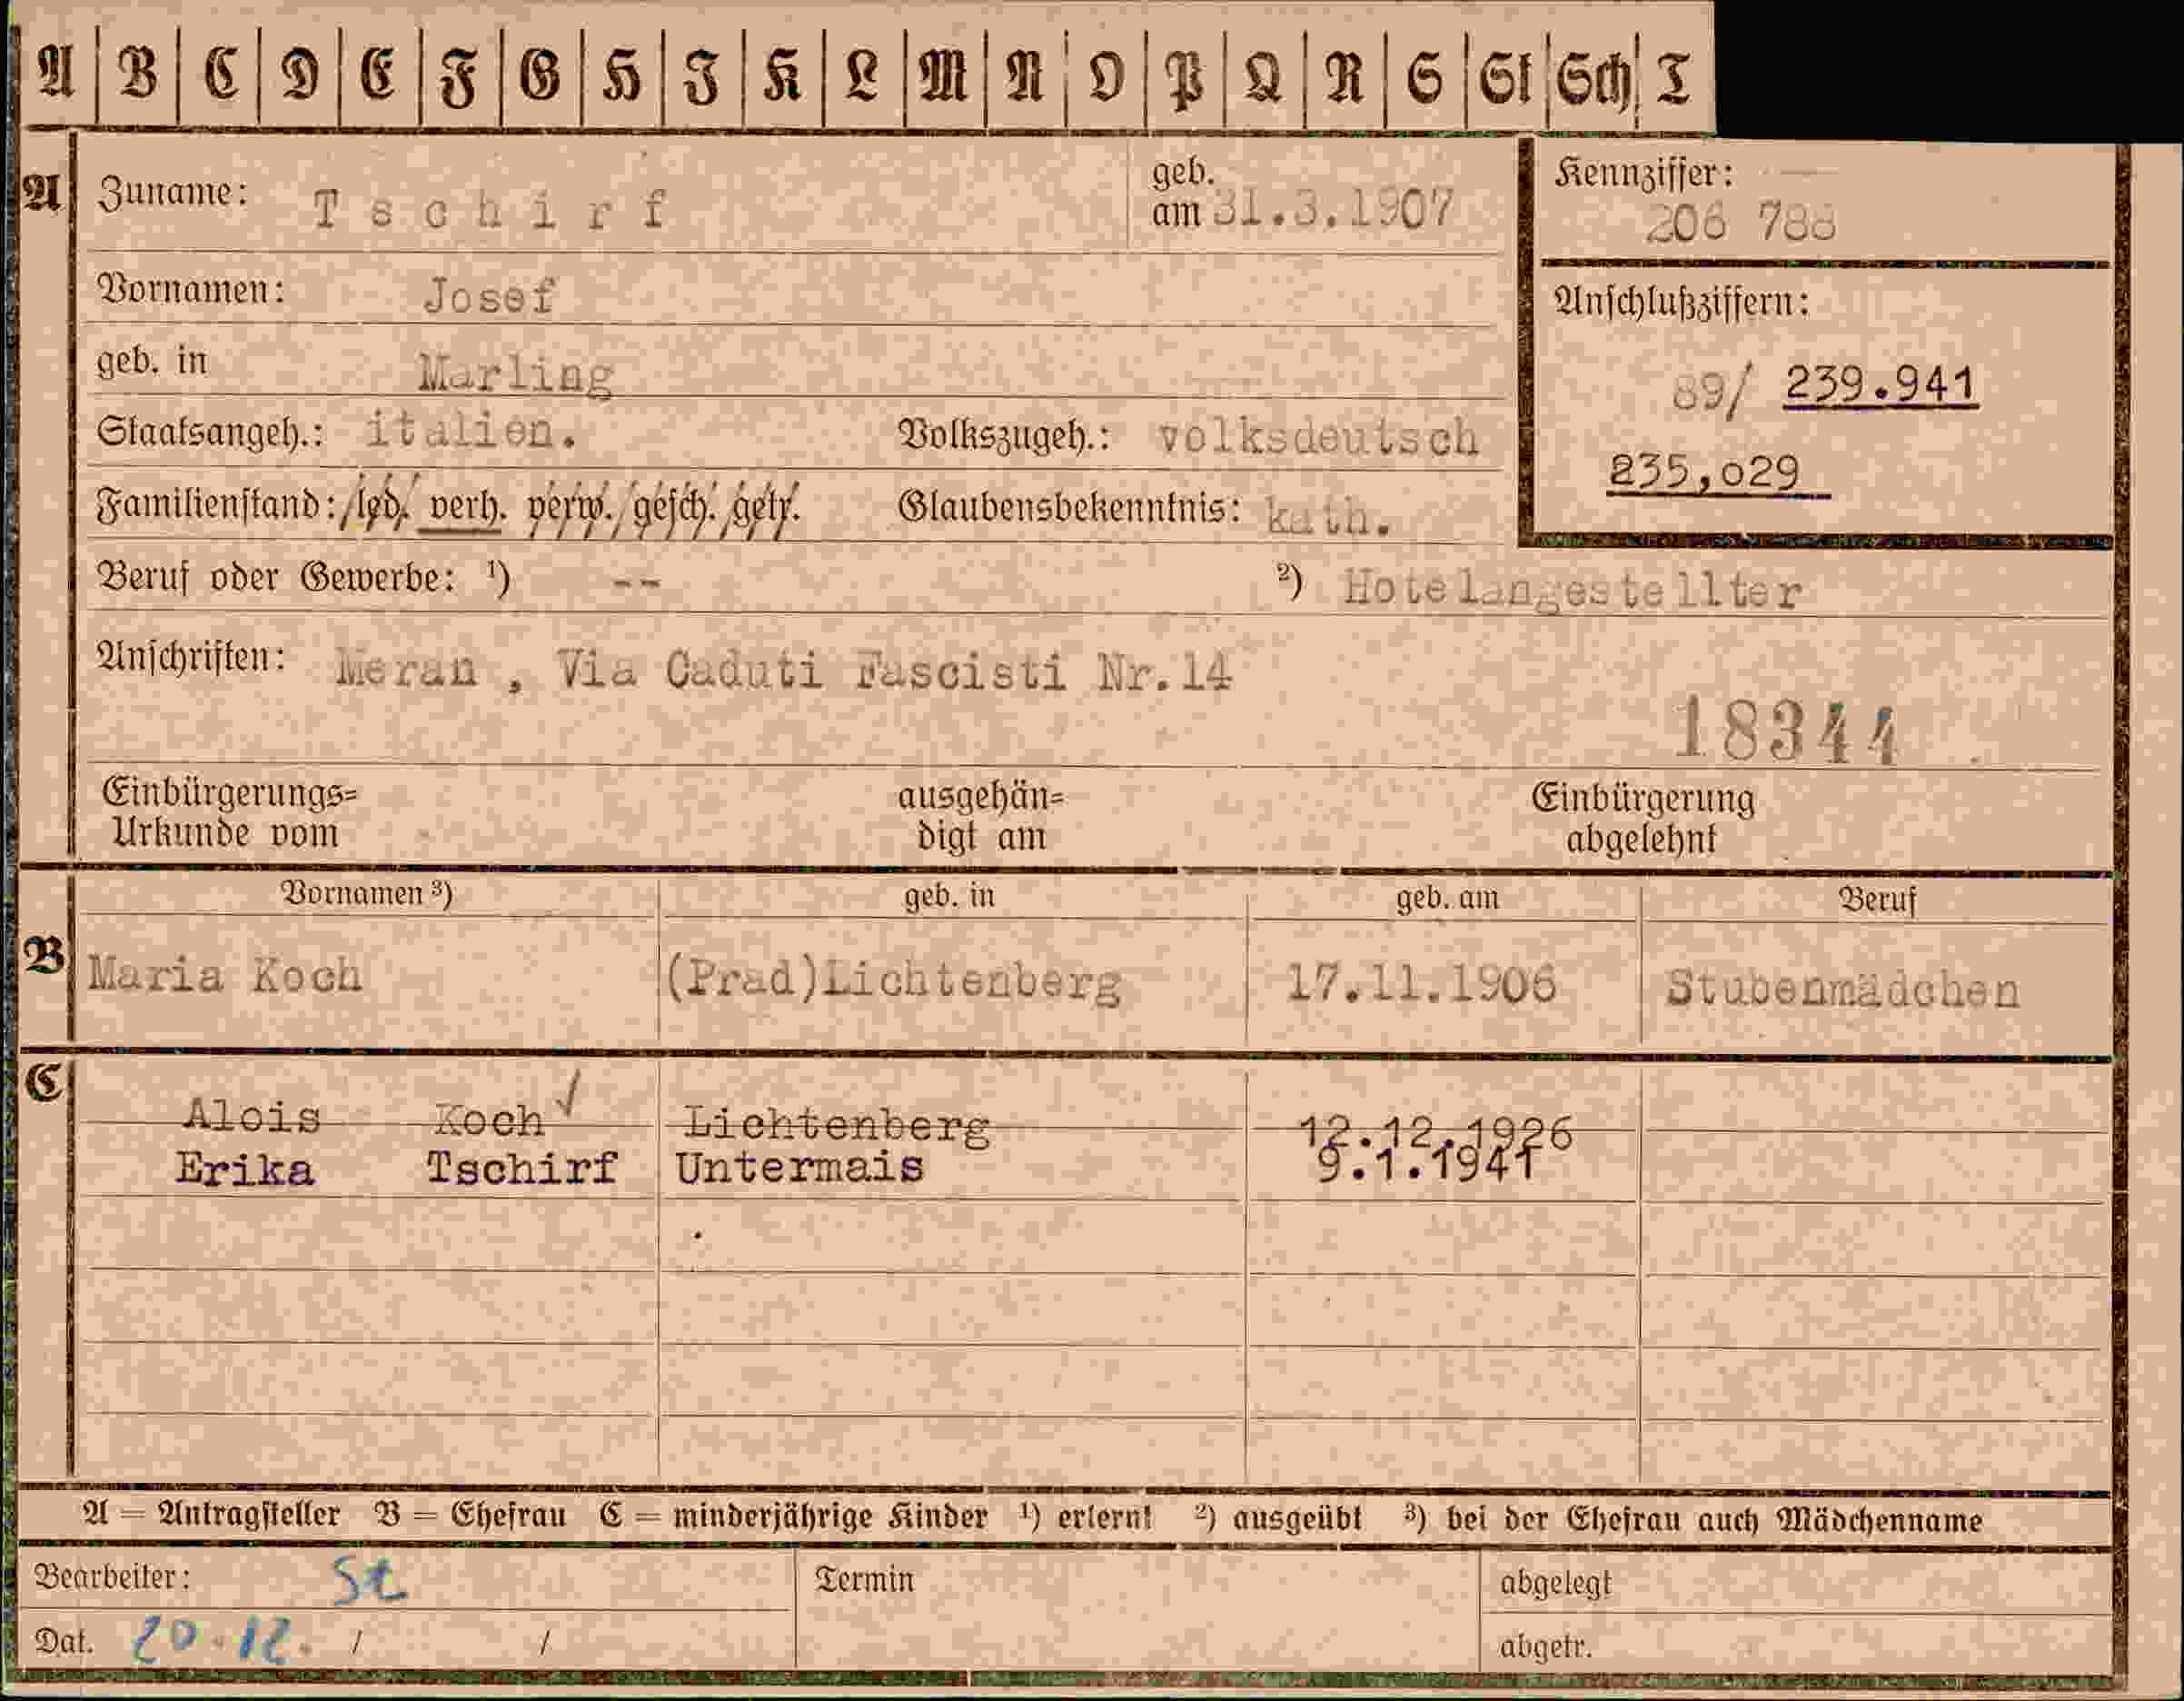 A B C D E F G H I K L M N O P Q R S St Sch T
A Zuname: Tschirf geb. am 31.3.1907
Kennziffer:
Vornamen: Josef
Anschlußziffern:
geb. in Marling
89/ 239.941
Staatsangeh.: italien. Volkszugeh.: volksdeutsch
235,029
Familienstand: led. verh. verw. gesch. getr. Glaubensbekenntnis: kath.
Beruf oder Gewerbe: ¹) -- ²) Hotelangestellter
Anschriften: Meran , Via Caduti Fascisti Nr.14
18344
Einbürgerungs= ausgehän= Einbürgerung
Urkunde vom digt am abgelehnt
Vornamen ³) geb. in geb. am Beruf
B Maria Koch (Prad)Lichtenberg 17.11.1906 Stubenmädchen
C
Alois Koch Lichtenberg 12.12.1926
Erika Tschirf Untermais 9.1.1941
A = Antragsteller B = Ehefrau C = minderjährige Kinder ¹) erlernt ²) ausgeübt ³) bei der Ehefrau auch Mädchenname
Bearbeiter: St Termin abgelegt
Dat. 20.12. / / abgetr.